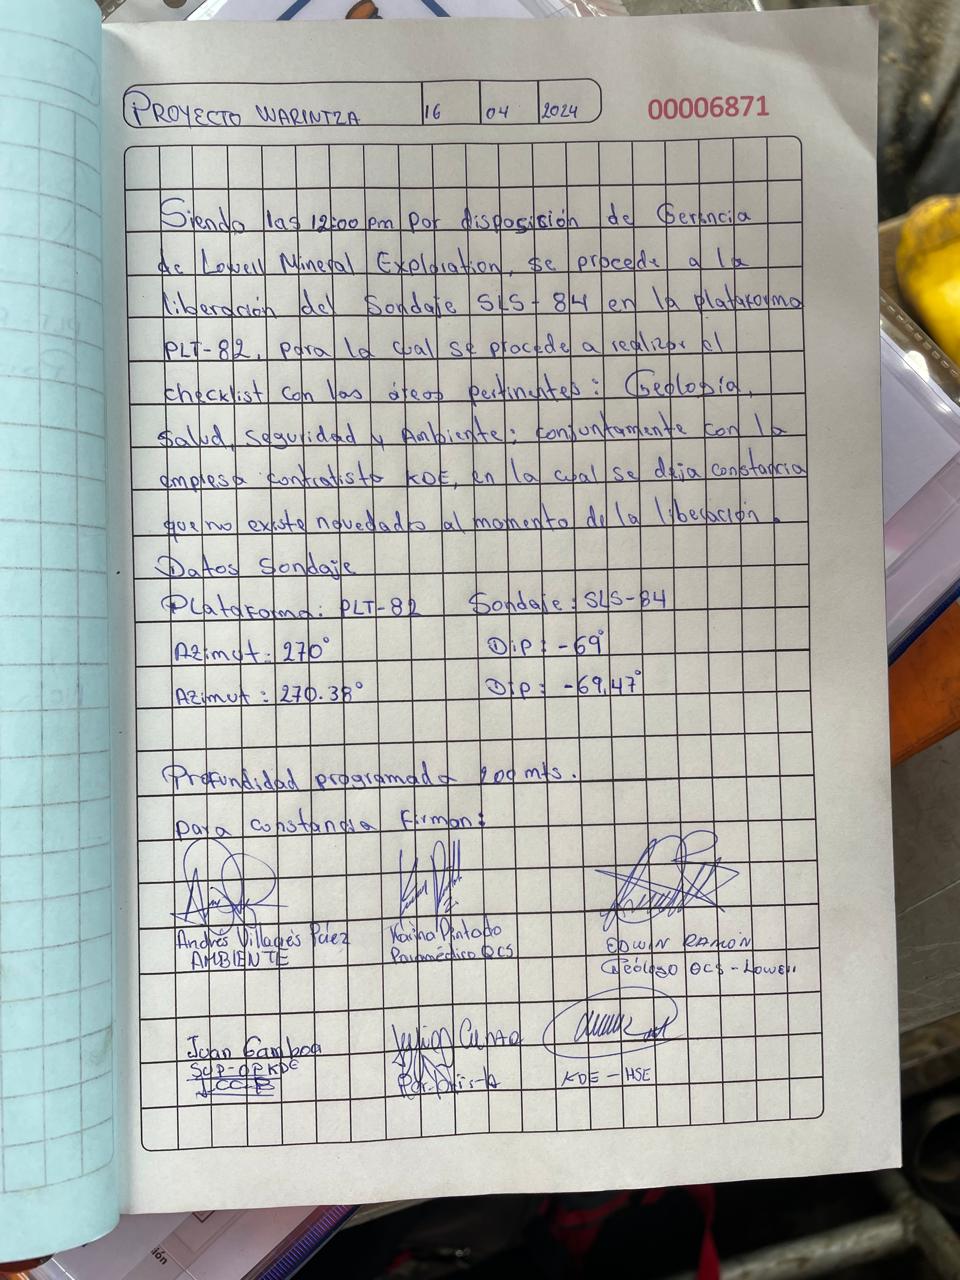 PROYECTO WARINTZA 16 04 2024 00006871
Siendo las 12:00 pm por disposición de Gerencia
de Lowell Mineral Exploration, se procede a la
liberación del Sondaje SLS-84 en la plataforma
PLT-82, para la cual se procede a realizar el
checklist con las áreas pertinentes: Geología,
Salud, seguridad y Ambiente; conjuntamente con la
empresa contratista KDE, en la cual se deja constancia
que no existe novedades al momento de la liberación.
Datos Sondaje
Plataforma: PLT-82 Sondaje: SLS-84
Azimut: 270° Dip: -69°
Azimut: 270.38° Dip: -69.47°
Profundidad programada mts.
para constancia Firman:
Andrés Villacrés Páez Karina Pintado EDWIN RAMÓN
AMBIENTE Paramédico QCS Geólogo QCS-Lowell
Juan Gamboa
SUP-OP KDE KDE-HSE